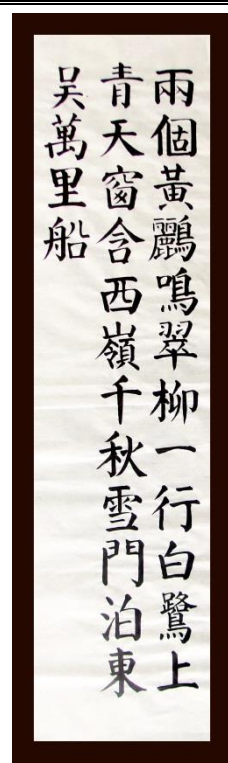 兩個黃鸝鳴翠柳一行白鷺上
青天窗含西嶺千秋雪門泊東
吳萬里船